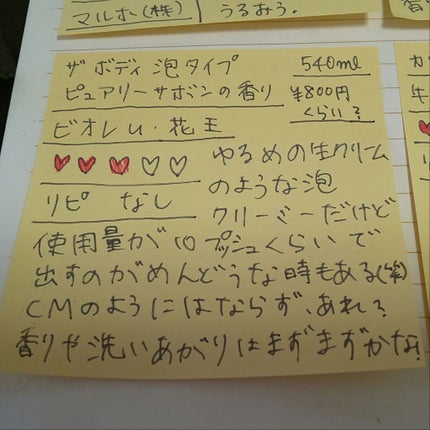 マルホ(株)
うるおう。
ザ ボディ 泡タイプ 540ml
ピュアリーサボンの香り ¥800円
くらい?
ビオレu・花王
ゆるめの生クリーム
のような泡
リピ なし
クリーミーだけど
使用量が10プッシュくらいで
出すのがめんどうな時もある(笑)
CMのようにはならず、あれ?
香りや洗いあがりはまずまずかな!